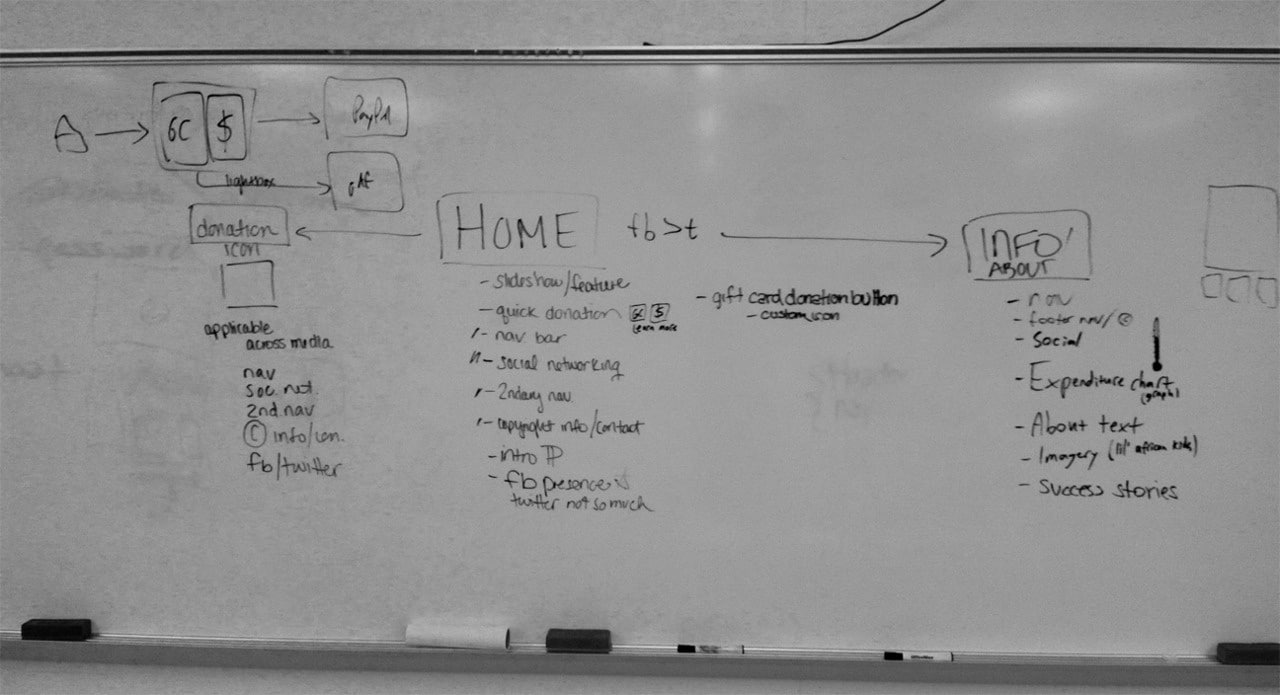 GC $
PayPal
lightbox
donation
icon
applicable
across media
nav
soc. net.
2nd. nav
© info/con.
fb/twitter
HOME fb>t
- slideshow/feature
- quick donation GC $
learn more
- nav bar
- social networking
- 2ndary nav
- copyright info/contact
- intro
- fb presence
twitter not so much
- gift card donation button
- custom icon
INFO/
ABOUT
- nav
- footer nav/©
- Social
- Expenditure chart
(graph)
- About text
- Imagery (lil' african kids)
- Success stories